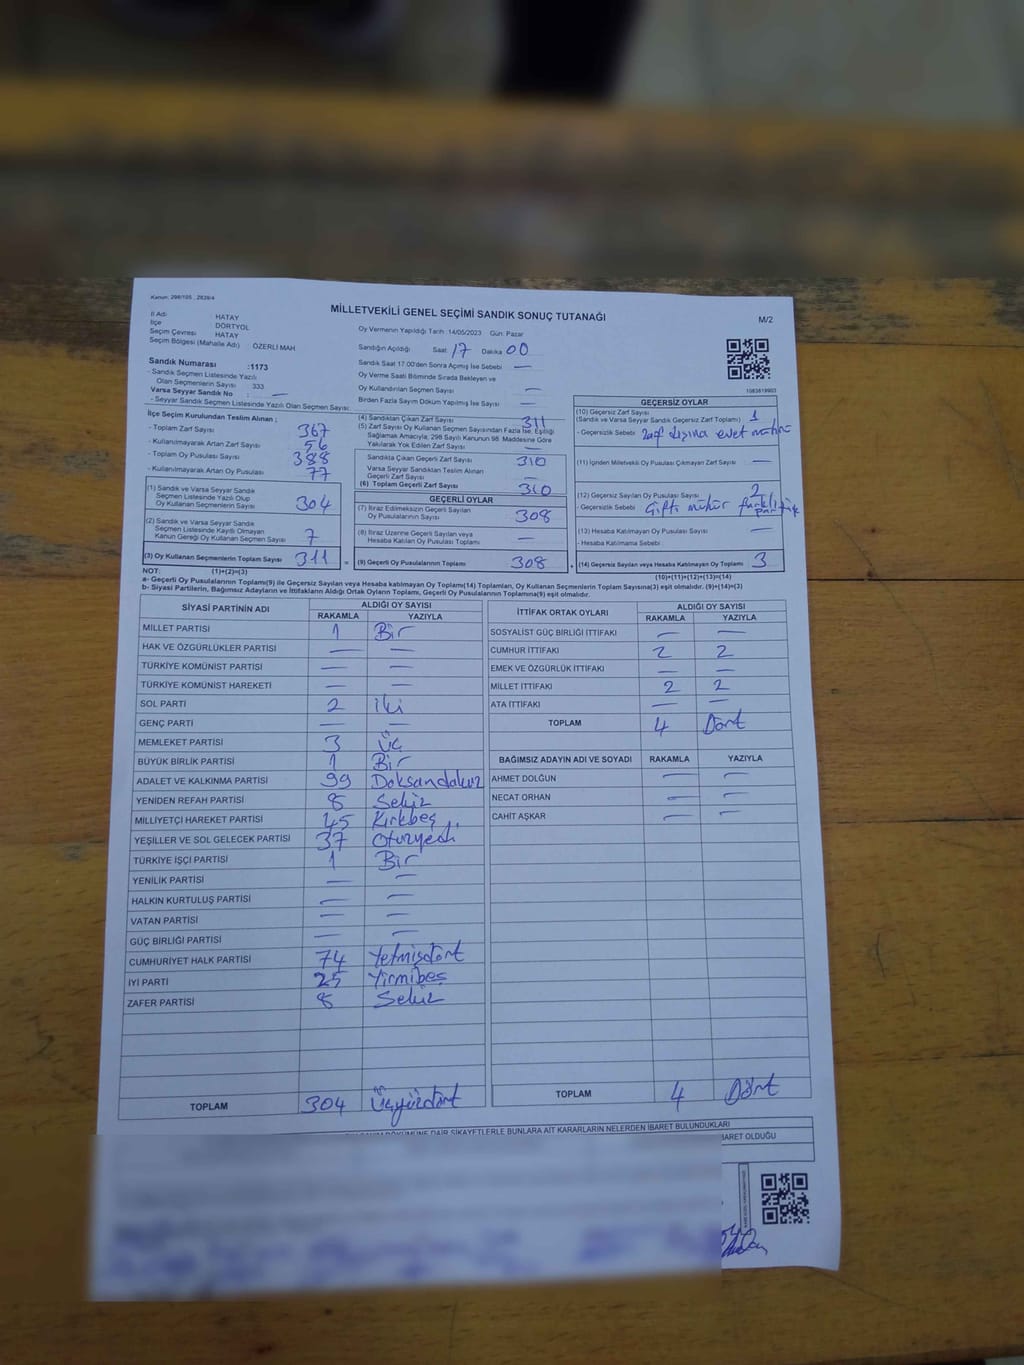 Kanun: 298/105 , 2839/4
MİLLETVEKİLİ GENEL SEÇİMİ SANDIK SONUÇ TUTANAĞI
M/2
İl Adı : HATAY
İlçe : DÖRTYOL
Seçim Çevresi : HATAY
Seçim Bölgesi (Mahalle Adı) : ÖZERLİ MAH
Oy Vermenin Yapıldığı Tarih :14/05/2023 Gün: Pazar
Sandığın Açıldığı Saat: 17 Dakika 00
Sandık Numarası :1173
- Sandık Seçmen Listesinde Yazılı
Olan Seçmenlerin Sayısı 333
Varsa Seyyar Sandık No : —
- Seyyar Sandık Seçmen Listesinde Yazılı Olan Seçmen Sayısı:
Sandık Saat 17.00'den Sonra Açımış İse Sebebi —
Oy Verme Saati Bitiminde Sırada Bekleyen ve
Oy Kullandırılan Seçmen Sayısı —
Birden Fazla Sayım Döküm Yapılmış İse Sayısı —
1083819903
İlçe Seçim Kurulundan Teslim Alınan ;
- Toplam Zarf Sayısı 367
- Kullanılmayarak Artan Zarf Sayısı 56
- Toplam Oy Pusulası Sayısı 388
- Kullanılmayarak Artan Oy Pusulası 77
(1) Sandık ve Varsa Seyyar Sandık
Seçmen Listesinde Yazılı Olup
Oy Kullanan Seçmenlerin Sayısı 304
(2) Sandık ve Varsa Seyyar Sandık
Seçmen Listesinde Kayıtlı Olmayan
Kanun Gereği Oy Kullanan Seçmen Sayısı 7
(3) Oy Kullanan Seçmenlerin Toplam Sayısı 311 =
(1)+(2)=(3)
(4) Sandıktan Çıkan Zarf Sayısı 311
(5) Zarf Sayısı Oy Kullanan Seçmen Sayısından Fazla İse, Eşitliği
Sağlamak Amacıyla, 298 Sayılı Kanunun 98. Maddesine Göre
Yakılarak Yok Edilen Zarf Sayısı
Sandıkta Çıkan Geçerli Zarf Sayısı 310
Varsa Seyyar Sandıktan Teslim Alınan
Geçerli Zarf Sayısı —
(6) Toplam Geçerli Zarf Sayısı 310
GEÇERLİ OYLAR
(7) İtiraz Edilmeksizin Geçerli Sayılan
Oy Pusulalarının Sayısı 308
(8) İtiraz Üzerine Geçerli Sayılan veya
Hesaba Katılan Oy Pusulası Toplamı —
(9) Geçerli Oy Pusulalarının Toplamı 308 +
GEÇERSİZ OYLAR
(10) Geçersiz Zarf Sayısı
(Sandık ve Varsa Seyyar Sandık Geçersiz Zarf Toplamı) 1
- Geçersizlik Sebebi zarf dışına evet mühürü
(11) İçinden Milletvekili Oy Pusulası Çıkmayan Zarf Sayısı —
(12) Geçersiz Sayılan Oy Pusulası Sayısı 2
- Geçersizlik Sebebi Çift mühür farklı
(13) Hesaba Katılmayan Oy Pusulası Sayısı —
- Hesaba Katılmama Sebebi
(14) Geçersiz Sayılan veya Hesaba Katılmayan Oy Toplamı 3
(10)+(11)+(12)+(13)=(14)
NOT:
a- Geçerli Oy Pusulalarının Toplamı(9) ile Geçersiz Sayılan veya Hesaba Katılmayan Oy Toplamı(14) Toplamları, Oy Kullanan Seçmenlerin Toplam Sayısına(3) eşit olmalıdır. (9)+(14)=(3)
b- Siyasi Partilerin, Bağımsız Adayların ve İttifakların Aldığı Ortak Oyların Toplamı, Geçerli Oy Pusulalarının Toplamına(9) eşit olmalıdır.
SİYASİ PARTİNİN ADI ALDIĞI OY SAYISI
RAKAMLA YAZIYLA
MİLLET PARTİSİ 1 Bir
HAK VE ÖZGÜRLÜKLER PARTİSİ — —
TÜRKİYE KOMÜNİST PARTİSİ — —
TÜRKİYE KOMÜNİST HAREKETİ — —
SOL PARTİ 2 iki
GENÇ PARTİ — —
MEMLEKET PARTİSİ 3 Üç
BÜYÜK BİRLİK PARTİSİ 1 Bir
ADALET VE KALKINMA PARTİSİ 99 Doksandokuz
YENİDEN REFAH PARTİSİ 8 Sekiz
MİLLİYETÇİ HAREKET PARTİSİ 45 Kırkbeş
YEŞİLLER VE SOL GELECEK PARTİSİ 37 Otuzyedi
TÜRKİYE İŞÇİ PARTİSİ 1 Bir
YENİLİK PARTİSİ — —
HALKIN KURTULUŞ PARTİSİ — —
VATAN PARTİSİ — —
GÜÇ BİRLİĞİ PARTİSİ — —
CUMHURİYET HALK PARTİSİ 74 Yetmişdört
İYİ PARTİ 25 Yirmibeş
ZAFER PARTİSİ 8 Sekiz
TOPLAM 304 Üçyüzdört
İTTİFAK ORTAK OYLARI ALDIĞI OY SAYISI
RAKAMLA YAZIYLA
SOSYALİST GÜÇ BİRLİĞİ İTTİFAKI — —
CUMHUR İTTİFAKI 2 2
EMEK VE ÖZGÜRLÜK İTTİFAKI — —
MİLLET İTTİFAKI 2 2
ATA İTTİFAKI — —
TOPLAM 4 Dört
BAĞIMSIZ ADAYIN ADI VE SOYADI RAKAMLA YAZIYLA
AHMET DOLĞUN — —
NECAT ORHAN — —
CAHİT AŞKAR — —
TOPLAM 4 Dört
DÖKÜMÜNE DAİR ŞİKAYETLERLE BUNLARA AİT KARARLARIN NELERDEN İBARET BULUNDUKLARI
İBARET OLDUĞU